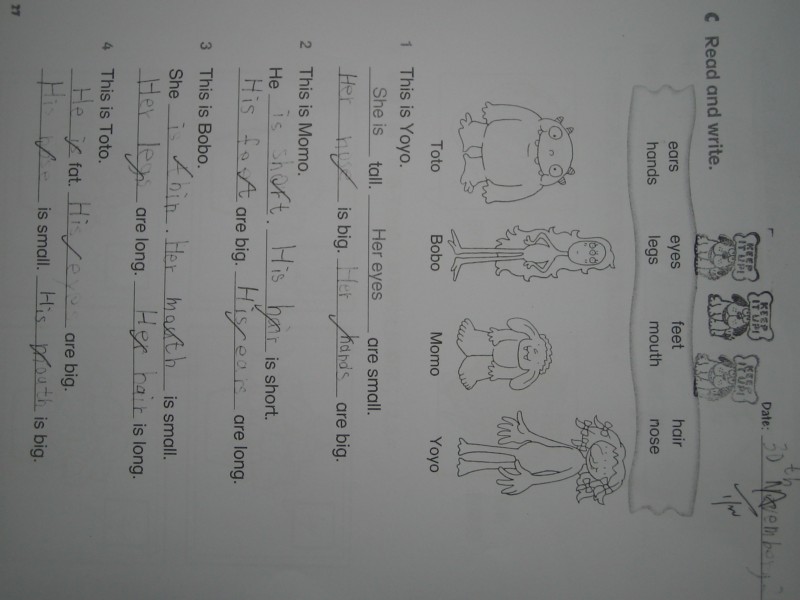 Date: 30th November
KEEP IT UP! KEEP IT UP! KEEP IT UP!
C Read and write.
ears eyes feet hair
hands legs mouth nose
Toto Bobo Momo Yoyo
1 This is Yoyo.
She is tall. Her eyes are small.
Her nose is big. Her hands are big.
2 This is Momo.
He is short. His hair is short.
His feet are big. His ears are long.
3 This is Bobo.
She is thin. Her mouth is small.
Her legs are long. Her hair is long.
4 This is Toto.
He is fat. His eyes are big.
His nose is small. His mouth is big.
27